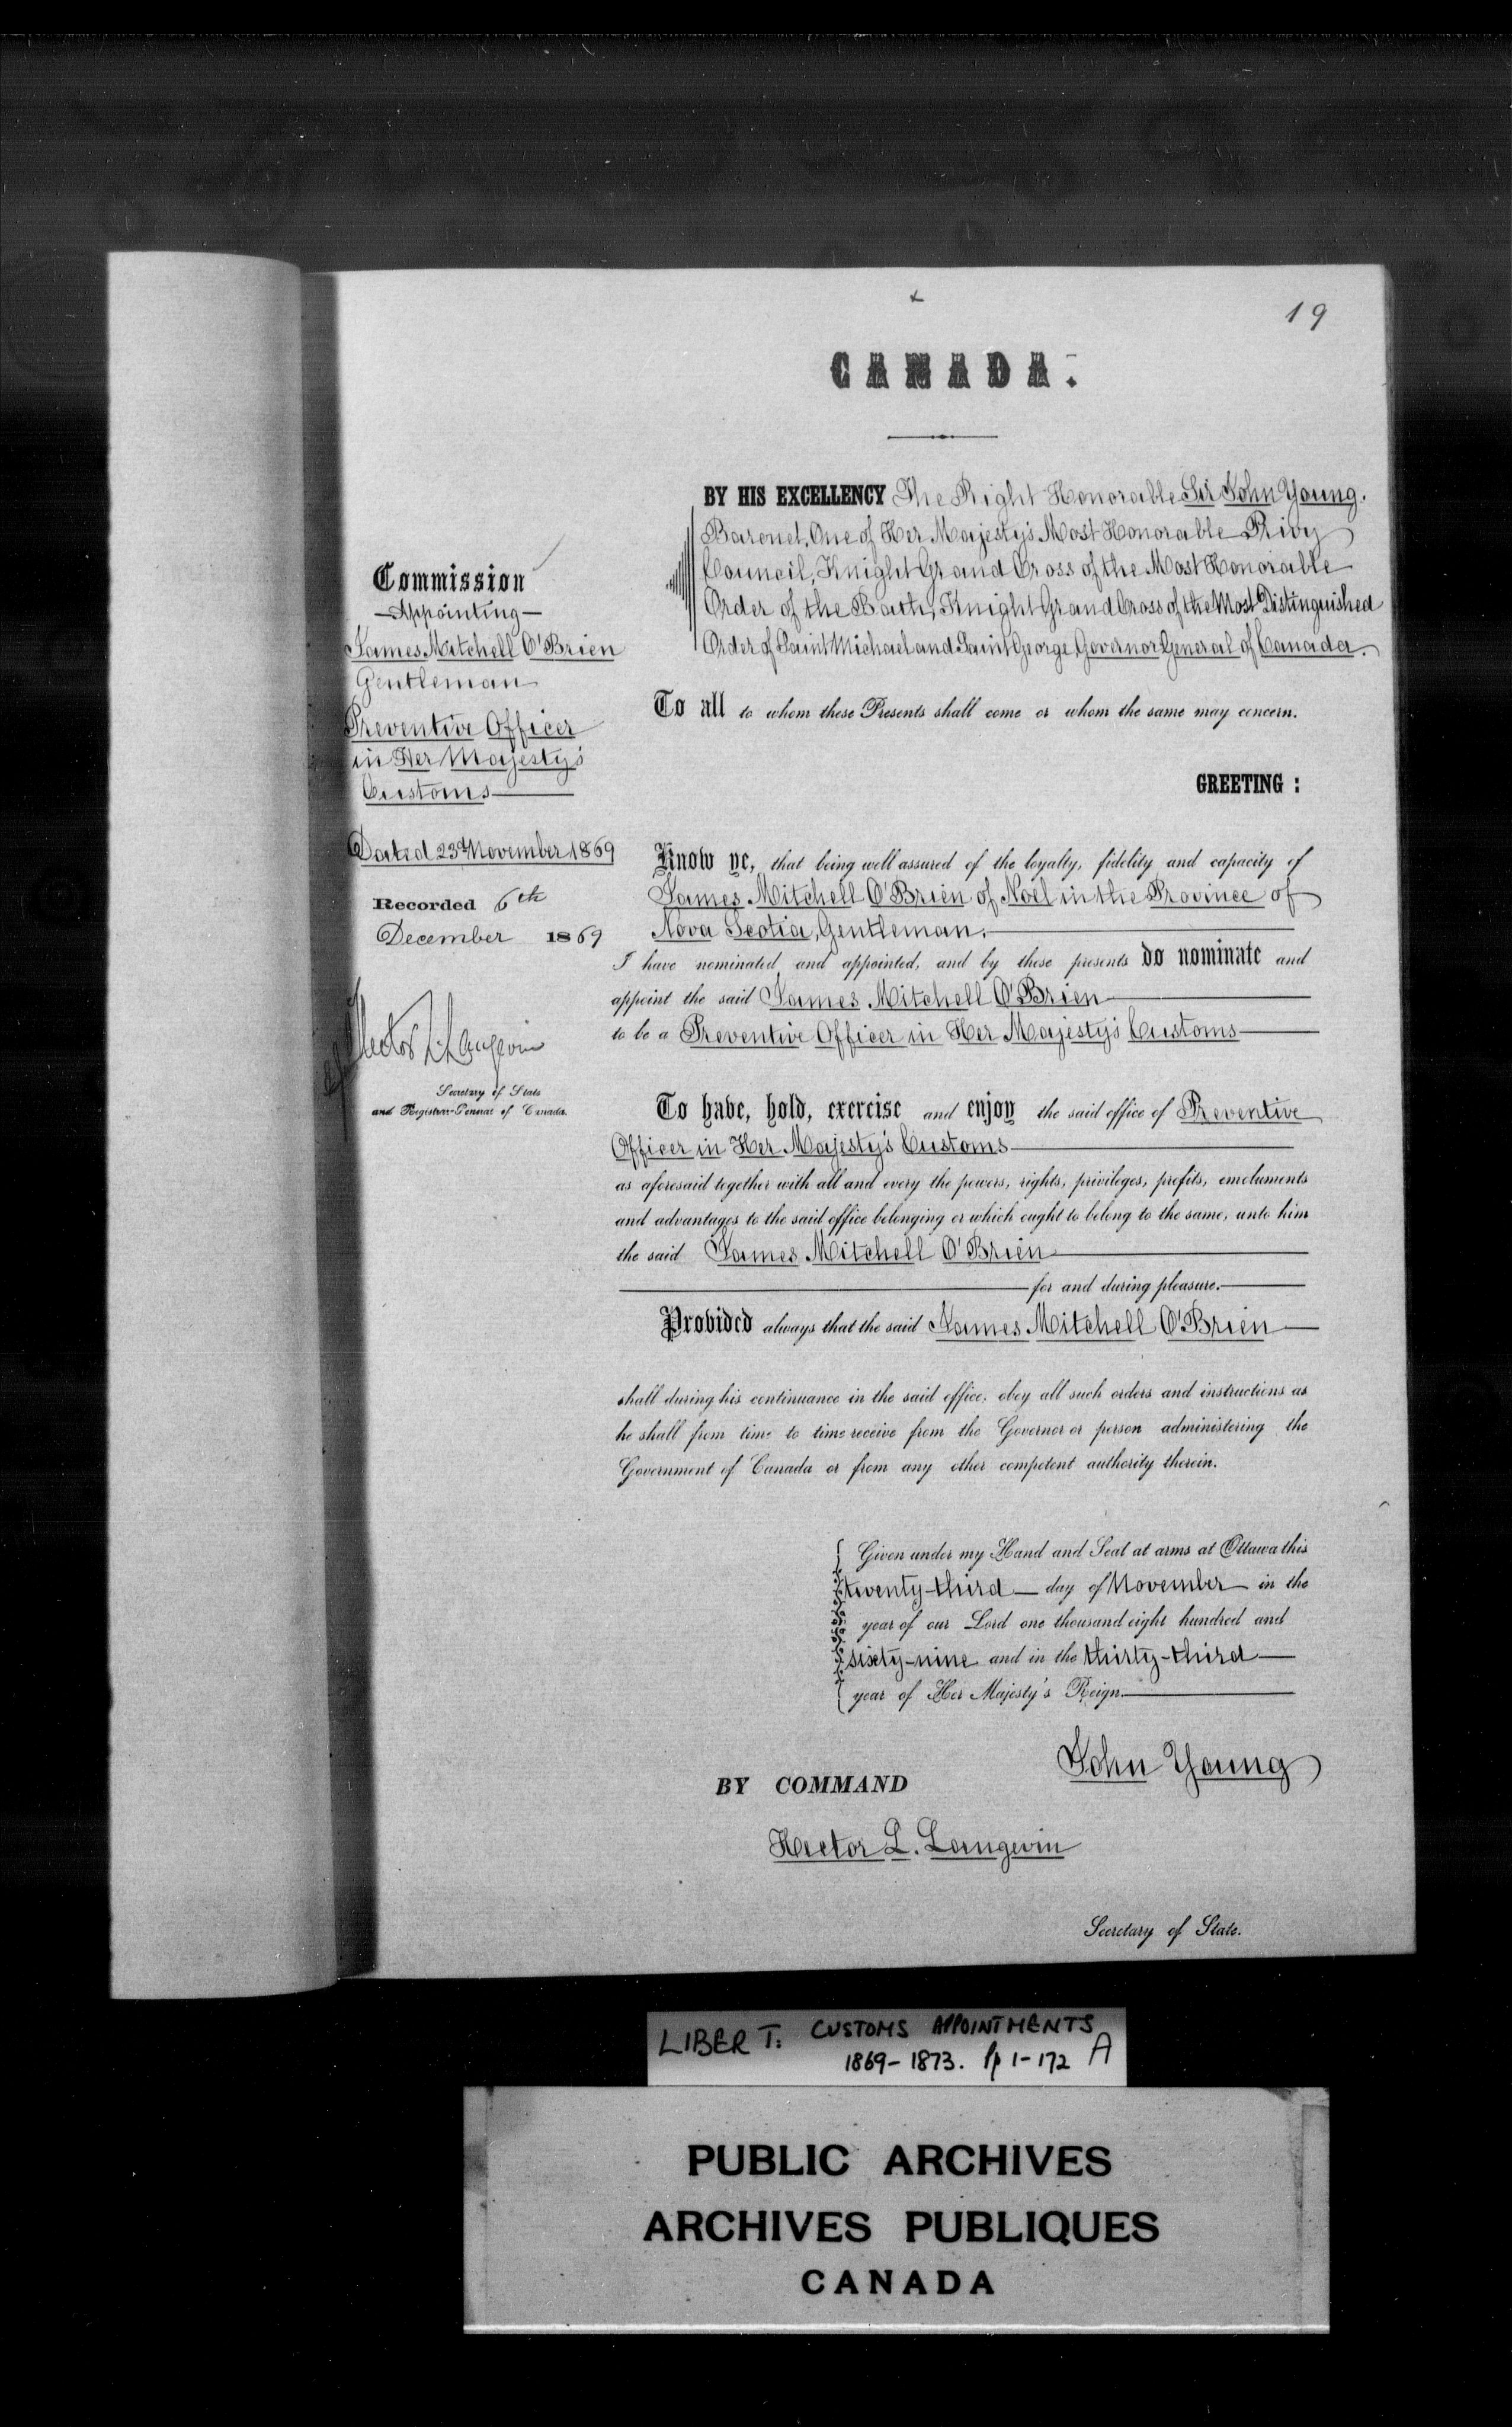 19
CANADA.
BY HIS EXCELLENCY The Right Honorable Sir John Young.
Baronet, One of Her Majesty's Most Honorable Privy
Council, Knight Grand Cross of the Most Honorable
Order of the Bath, Knight Grand Cross of the Most Distinguished
Order of Saint Michael and Saint George, Governor General of Canada.
To all to whom these Presents shall come or whom the same may concern.
GREETING :
Commission
Appointing
James Mitchell O'Brien
Gentleman
Preventive Officer
in Her Majesty's
Customs
Dated 23d November 1869
Recorded 6th
December 1869
Hector L. Langevin
Secretary of State
and Registrar-General of Canada.
Know ye, that being well assured of the loyalty, fidelity and capacity of
James Mitchell O'Brien of Noel in the Province of
Nova Scotia, Gentleman.
I have nominated and appointed, and by these presents do nominate and
appoint the said James Mitchell O'Brien
to be a Preventive Officer in Her Majesty's Customs
To have, hold, exercise and enjoy the said office of Preventive
Officer in Her Majesty's Customs
as aforesaid together with all and every the powers, rights, privileges, profits, emoluments
and advantages to the said office belonging or which ought to belong to the same, unto him
the said James Mitchell O'Brien
for and during pleasure.
Provided always that the said James Mitchell O'Brien
shall during his continuance in the said office, obey all such orders and instructions as
he shall from time to time receive from the Governor or person administering the
Government of Canada or from any other competent authority therein.
Given under my Hand and Seal at arms at Ottawa this
twenty-third day of November in the
year of our Lord one thousand eight hundred and
sixty-nine and in the thirty-third
year of Her Majesty's Reign.
John Young
BY COMMAND
Hector L. Langevin
Secretary of State.
LIBER T: CUSTOMS APPOINTMENTS
1869-1873. Pp 1-172 A
PUBLIC ARCHIVES
ARCHIVES PUBLIQUES
CANADA